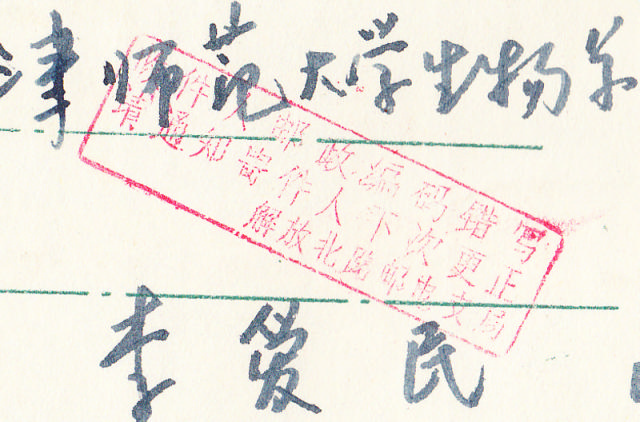 津师范大学生物系
收件人邮政编码错写
请通知寄件人下次更正
解放北路邮电支局
李爱民